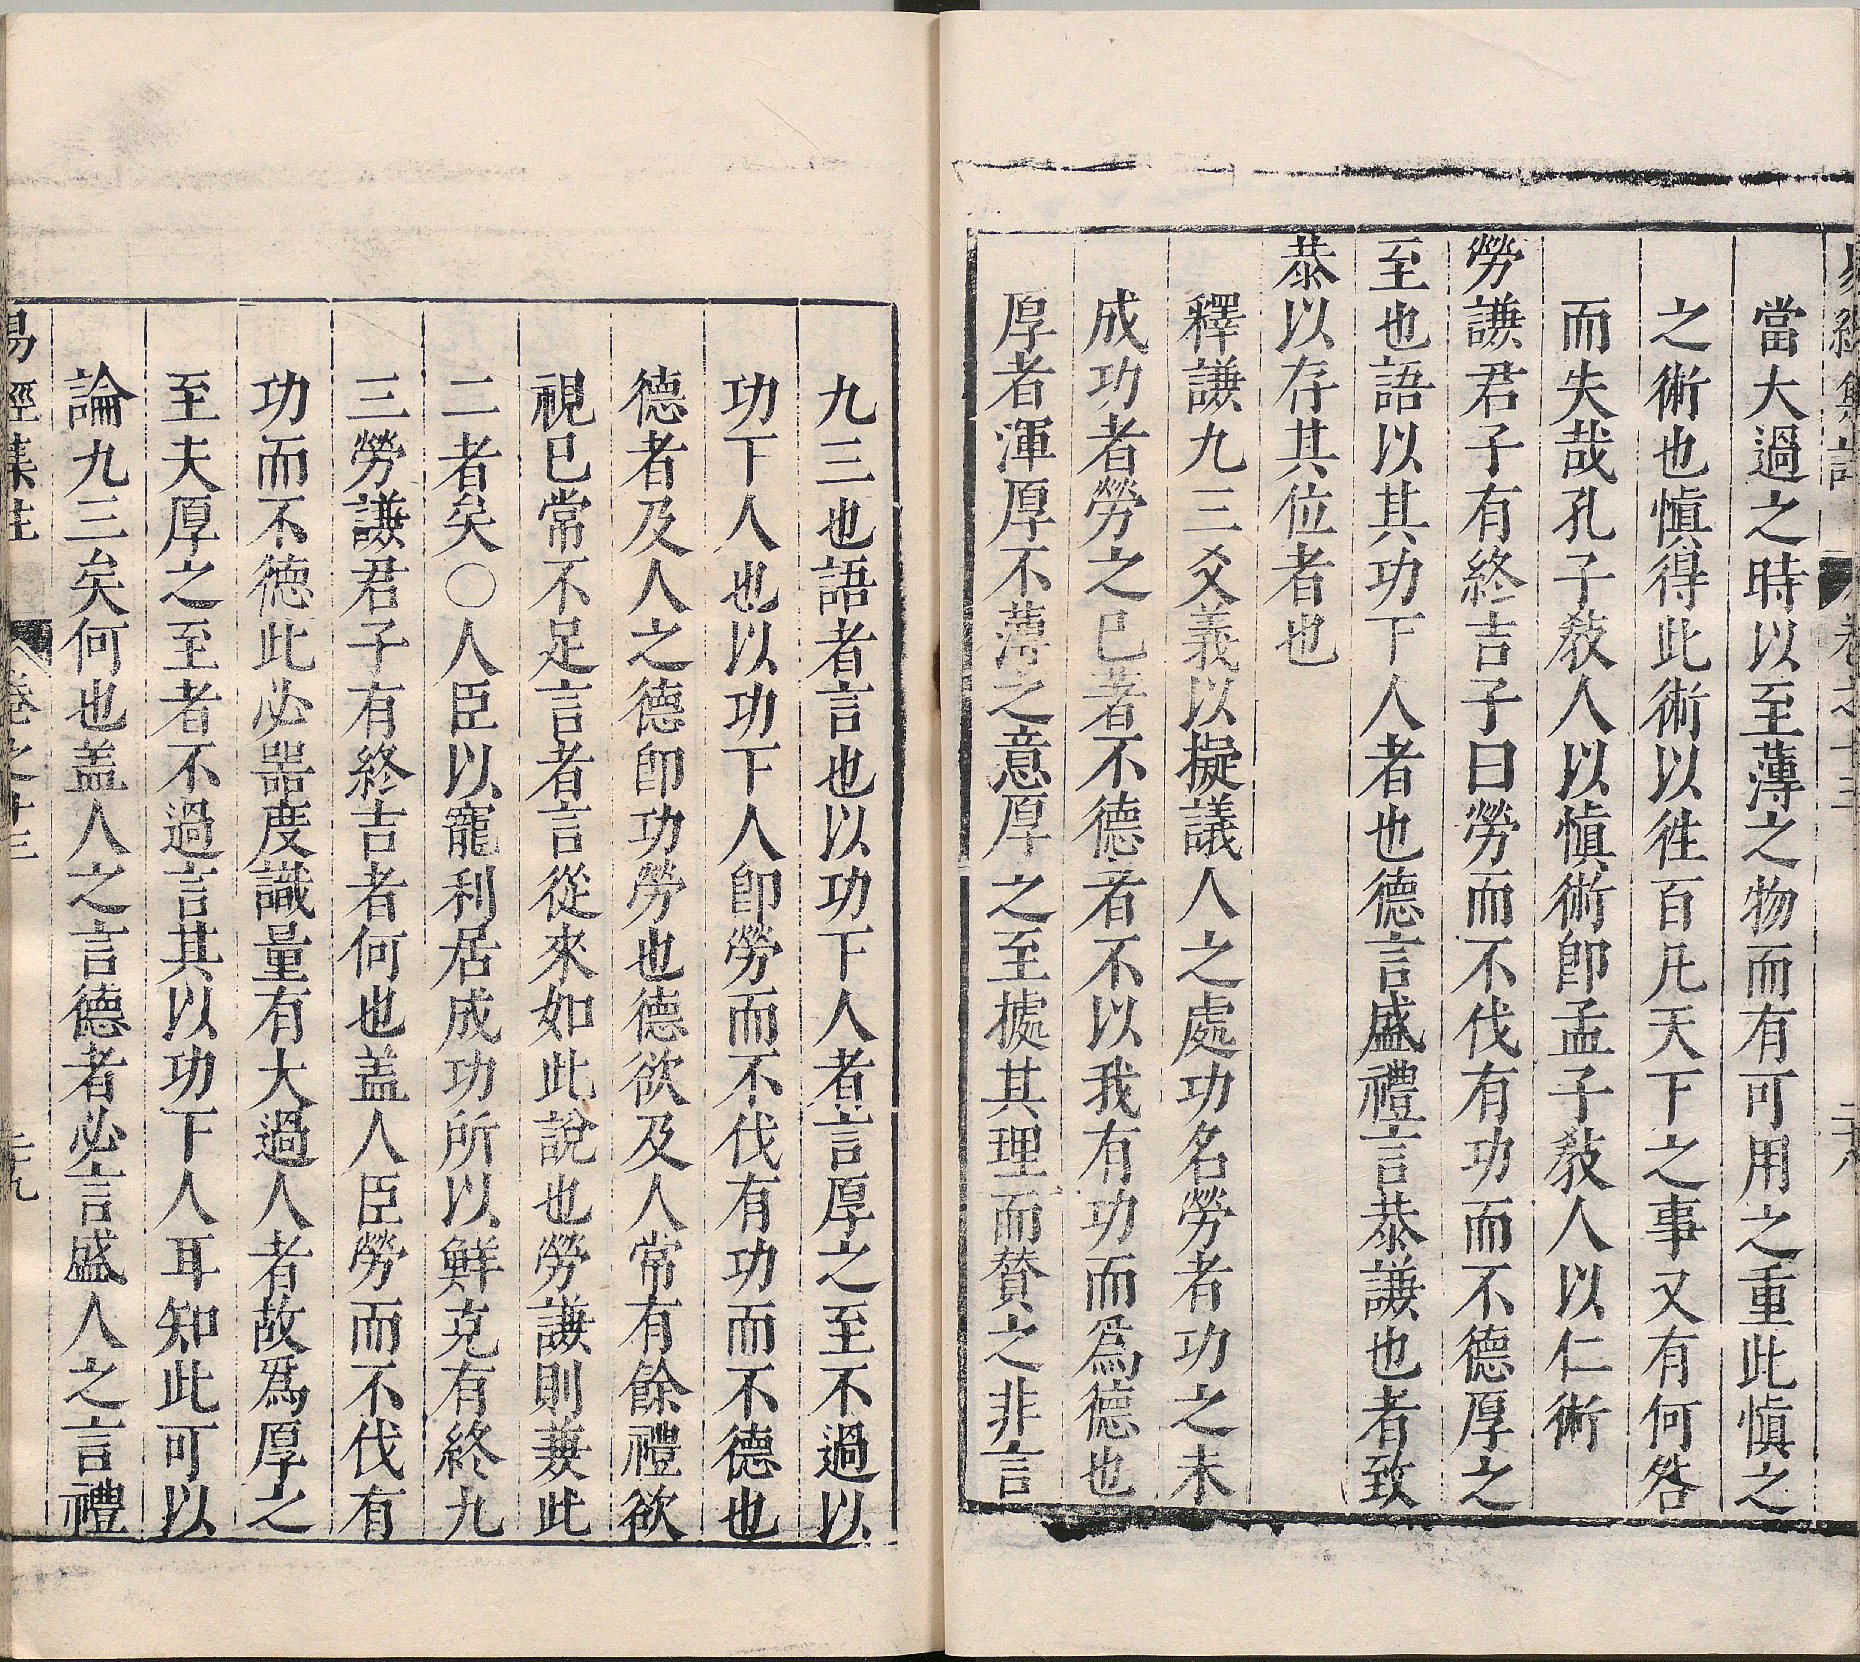 易經集註 卷之十三 二十八
當大過之時以至薄之物而有可用之重此愼之
之術也愼得此術以徃百凡天下之事又有何咎
而失哉孔子敎人以愼術卽孟子敎人以仁術
勞謙君子有終吉子曰勞而不伐有功而不德厚之
至也語以其功下人者也德言盛禮言恭謙也者致
恭以存其位者也
釋謙九三爻義以擬議人之處功名勞者功之未
成功者勞之已著不德者不以我有功而爲德也
厚者渾厚不薄之意厚之至據其理而賛之非言
九三也語者言也以功下人者言厚之至不過以
功下人也以功下人卽勞而不伐有功而不德也
德者及人之德卽功勞也德欲及人常有餘禮欲
視已常不足言者言從來如此說也勞謙則兼此
二者矣○人臣以寵利居成功所以鮮克有終九
三勞謙君子有終吉者何也盖人臣勞而不伐有
功而不德此必噐度識量有大過人者故爲厚之
至夫厚之至者不過言其以功下人耳知此可以
論九三矣何也盖人之言德者必言盛人之言禮
易經集註 卷之十三 二十九